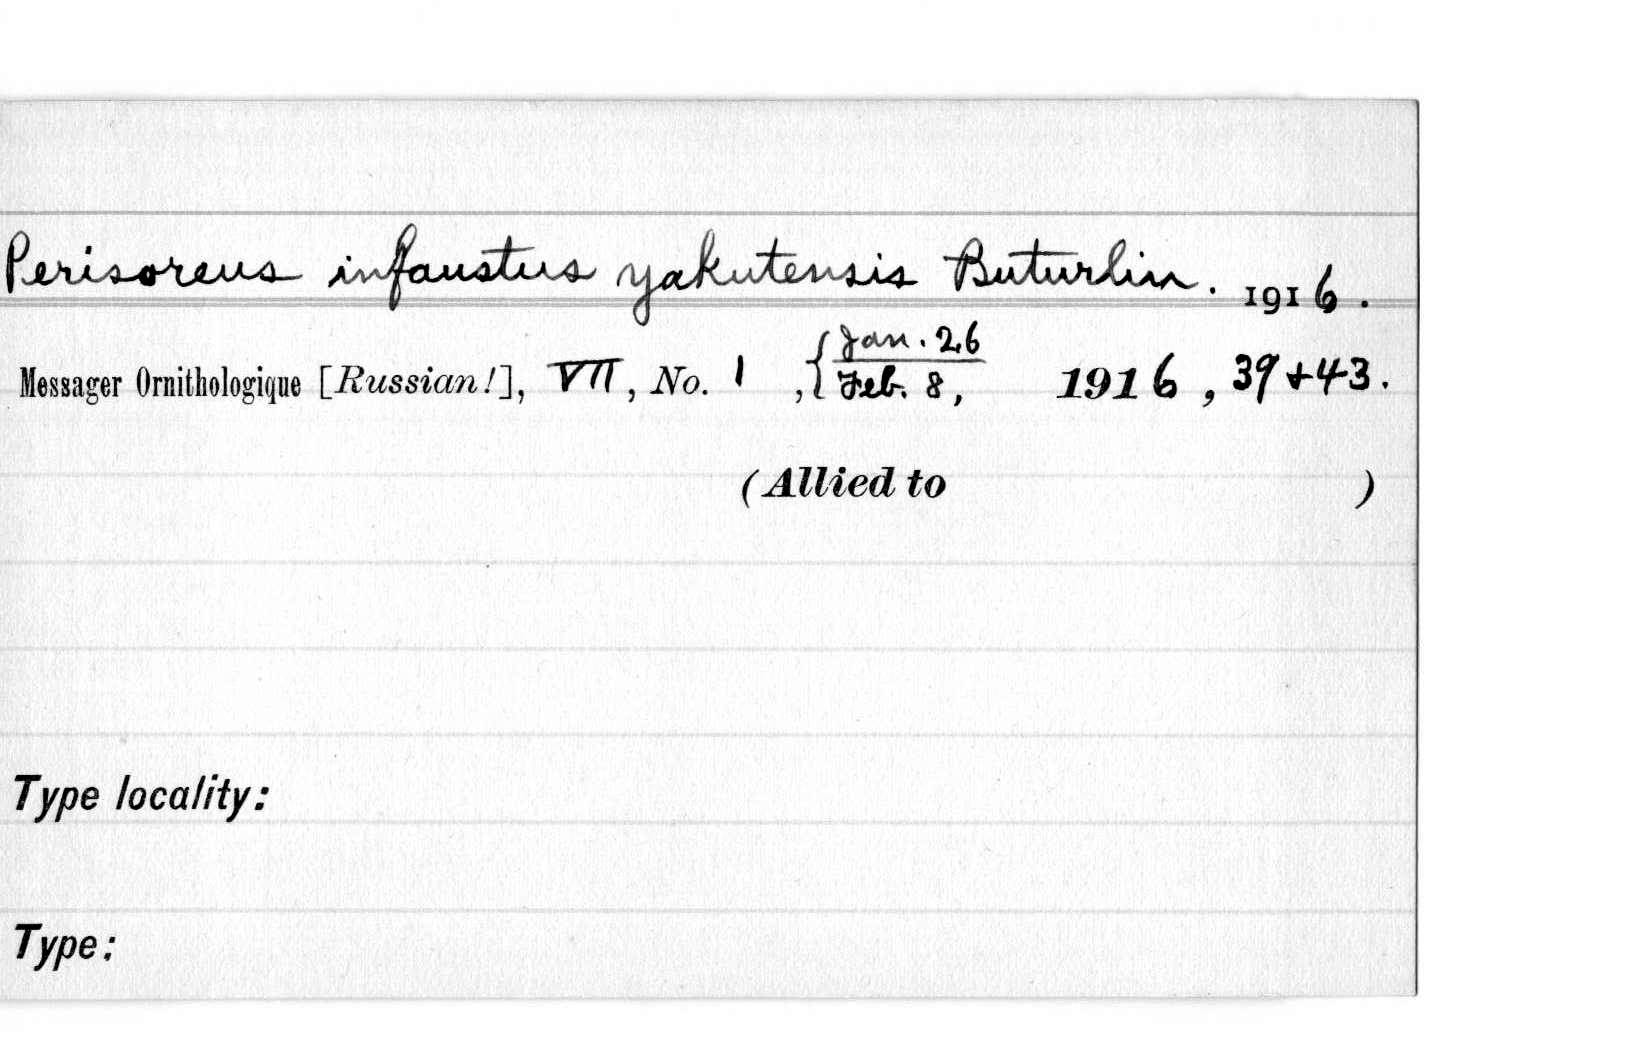 Perisoreus infaustus yakutensis Buturlin. 1916.
Messager Ornithologique [Russian!], VII, No. 1 , { Jan. 26
Feb. 8, 1916, 39+43.
(Allied to )
Type locality:
Type: